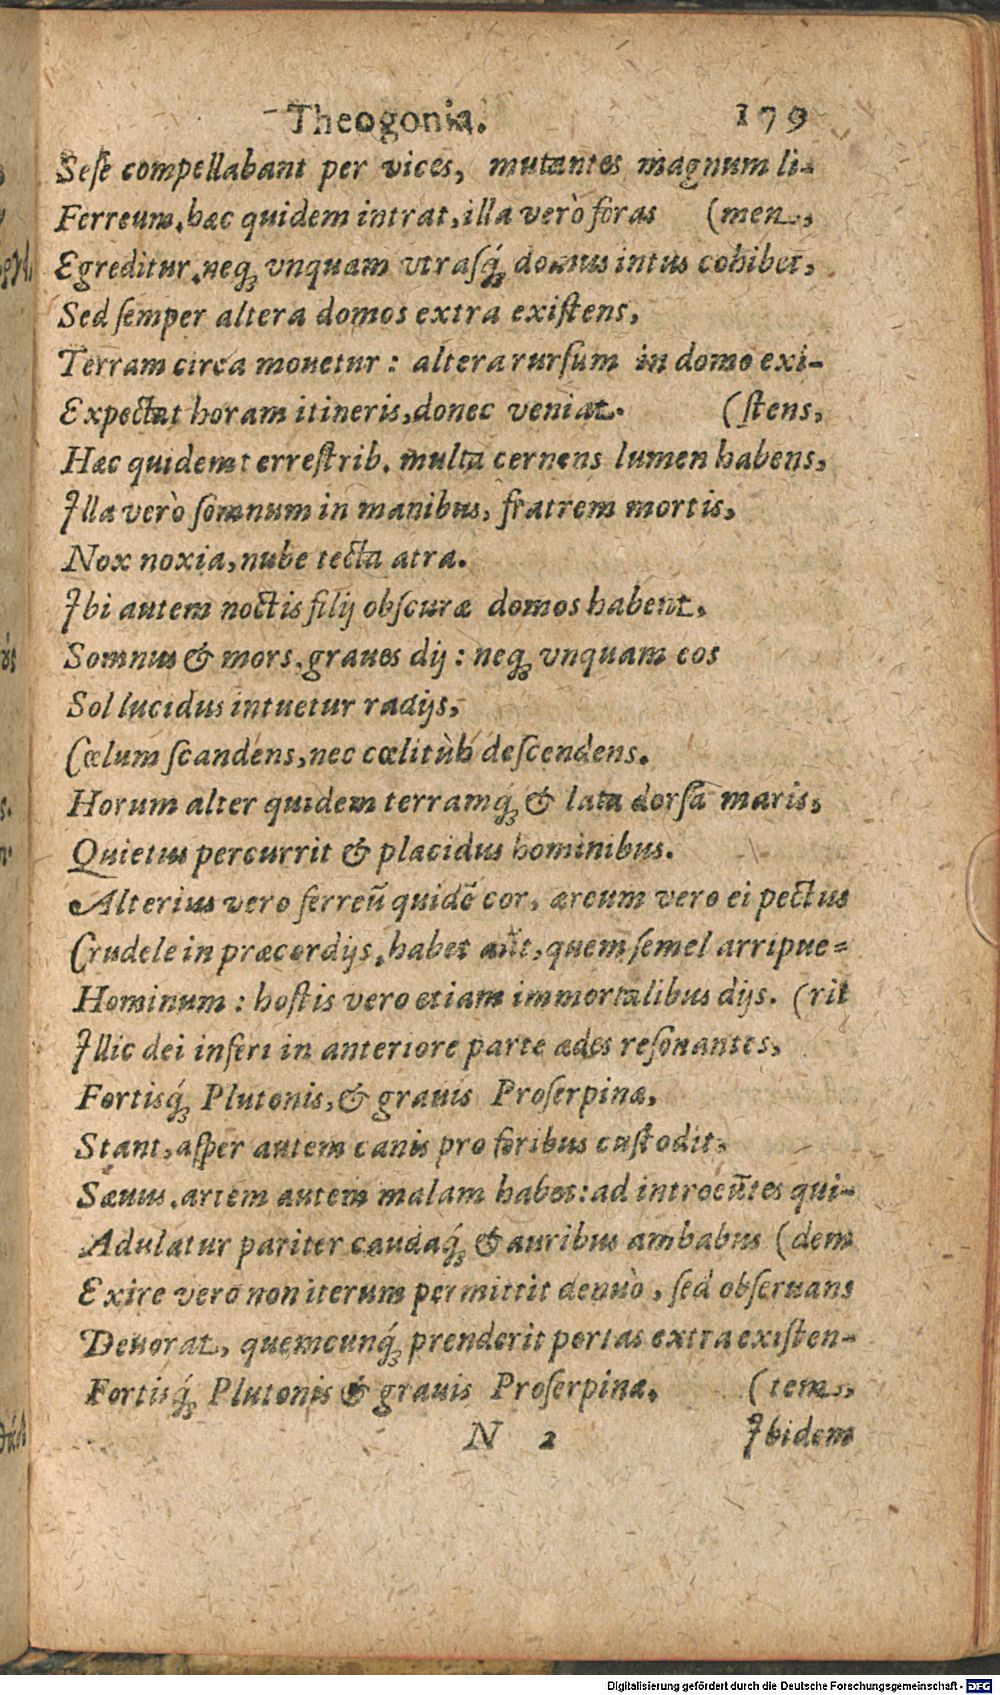 Theogonia. 179
Sese compellabant per vices, mutantes magnum li-
Ferreum, hæc quidem intrat, illa verò foras (men,
Egreditur, neq; vnquam vtrasq́; domus intus cohibet,
Sed semper altera domos extra existens,
Terram circa mouetur: altera rursum in domo exi-
Expectat horam itineris, donec veniat. (stens,
Hæc quidem terrestrib. multa cernens lumen habens,
Illa verò somnum in manibus, fratrem mortis,
Nox noxia, nube tecta atra.
Ibi autem noctis filij obscuræ domos habent,
Somnus & mors, graues dij: neq; vnquam eos
Sol lucidus intuetur radijs,
Cœlum scandens, nec cœlitùs descendens.
Horum alter quidem terramq́; & lata dorsa maris,
Quietus percurrit & placidus hominibus.
Alterius vero ferreū quidē cor, æreum vero ei pectus
Crudele in præcordijs, habet aūt, quem semel arripue=
Hominum: hostis vero etiam immortalibus dijs. (rit
Illic dei inferi in anteriore parte ædes resonantes,
Fortisq́; Plutonis, & grauis Proserpinæ,
Stant, asper autem canis pro foribus custodit,
Sæuus, artem autem malam habet: ad introeūtes qui-
Adulatur pariter caudaq́; & auribus ambabus (dem
Exire vero non iterum permittit denuò, sed obseruans
Deuorat, quemcunq́; prenderit portas extra existen-
Fortisq́; Plutonis & grauis Proserpinæ. (tem,
N 2 Ibidem
Digitalisierung gefördert durch die Deutsche Forschungsgemeinschaft - DFG